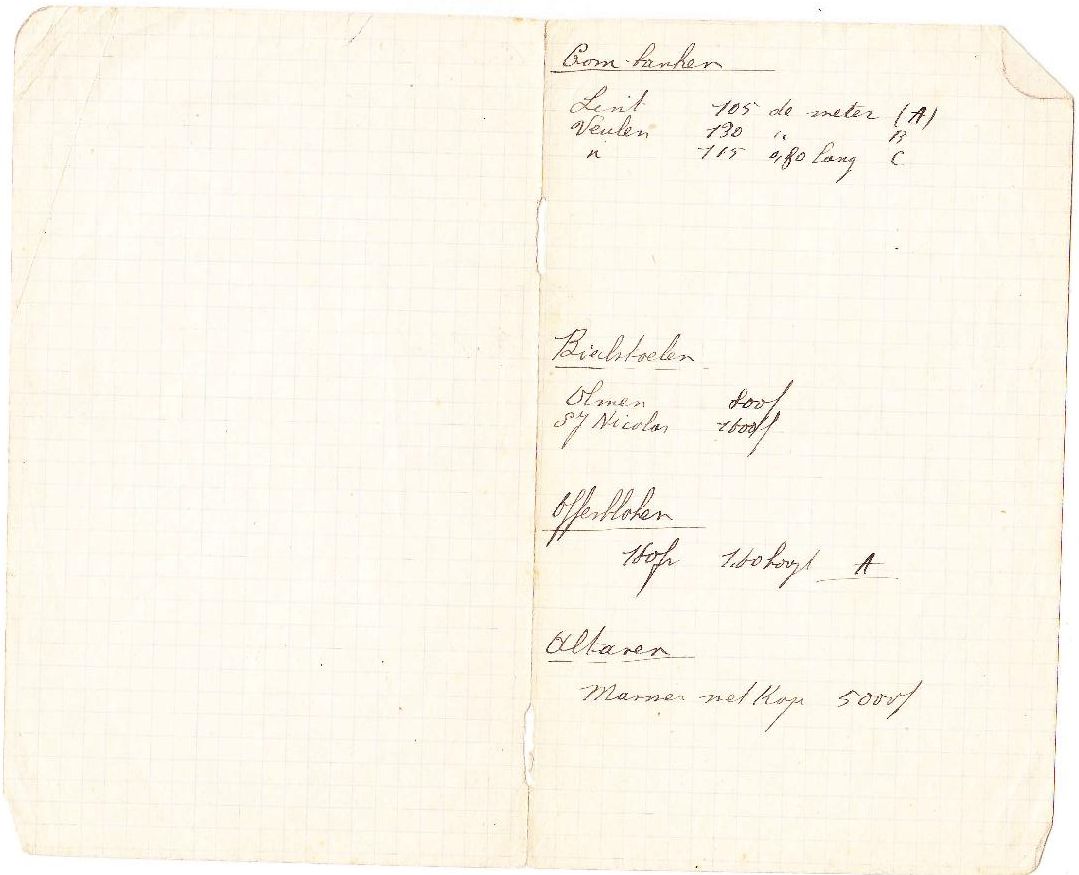 Com-banken
Lint 105 de meter (A)
Veulen 130 " B
" 115 0,80 lang C
Biechtstoelen
Olmen 800f
St Nicolas 1600f
Offerbloken
160fr 1.60 hoogt A
Altaren
Marmer met Kop 5000f